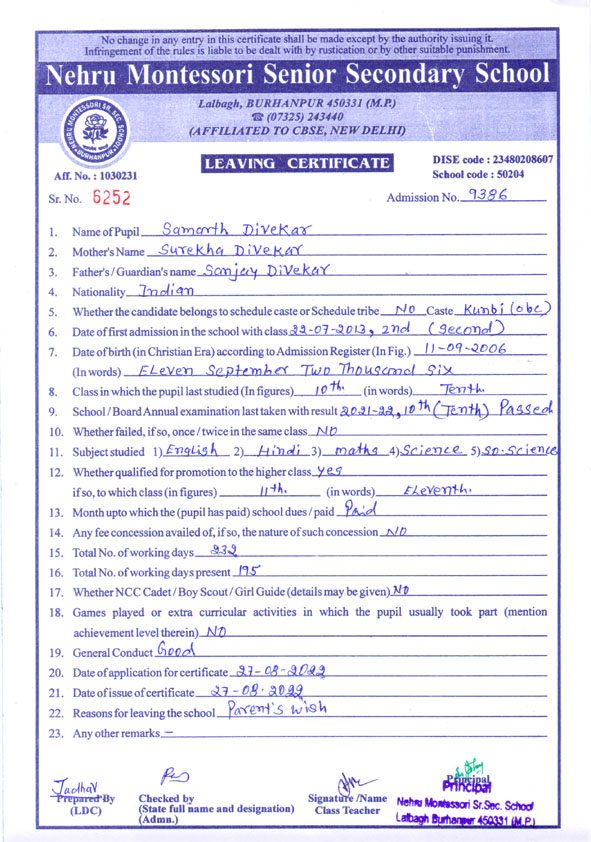 No change in any entry in this certificate shall be made except by the authority issuing it.
Infringement of the rules is liable to be dealt with by rustication or by other suitable punishment.
Nehru Montessori Senior Secondary School
Lalbagh, BURHANPUR 450331 (M.P.)
☎ (07325) 243440
(AFFILIATED TO CBSE, NEW DELHI)
NEHRU MONTESSORI SR. SEC. SCHOOL
BURHANPUR
LEAVING CERTIFICATE
DISE code : 23480208607
School code : 50204
Aff. No. : 1030231
Sr. No. 6252
Admission No. 9386
1. Name of Pupil Samarth Divekar
2. Mother's Name Surekha Divekar
3. Father's / Guardian's name Sanjay Divekar
4. Nationality Indian
5. Whether the candidate belongs to schedule caste or Schedule tribe NO Caste Kunbi (obc)
6. Date of first admission in the school with class 22-07-2013, 2nd (Second)
7. Date of birth (in Christian Era) according to Admission Register (In Fig.) 11-09-2006
(In words) Eleven September Two Thousand Six
8. Class in which the pupil last studied (In figures) 10th. (in words) Tenth
9. School / Board Annual examination last taken with result 2021-22, 10th (Tenth) Passed
10. Whether failed, if so, once / twice in the same class NO
11. Subject studied 1) English 2) Hindi 3) maths 4) Science 5) So. Science
12. Whether qualified for promotion to the higher class yes
if so, to which class (in figures) 11th. (in words) Eleventh.
13. Month upto which the (pupil has paid) school dues / paid Paid
14. Any fee concession availed of, if so, the nature of such concession NO
15. Total No. of working days 232
16. Total No. of working days present 195
17. Whether NCC Cadet / Boy Scout / Girl Guide (details may be given) NO
18. Games played or extra curricular activities in which the pupil usually took part (mention
achievement level therein) NO
19. General Conduct Good
20. Date of application for certificate 27-08-2022
21. Date of issue of certificate 27-08-2022
22. Reasons for leaving the school Parent's wish
23. Any other remarks –
Jadhav
Prepared By
(LDC)
Checked by
(State full name and designation)
(Admn.)
Signature /Name
Class Teacher
Principal
Principal
Nehru Montessori Sr.Sec. School
Lalbagh Burhanpur 450331 (M.P.)